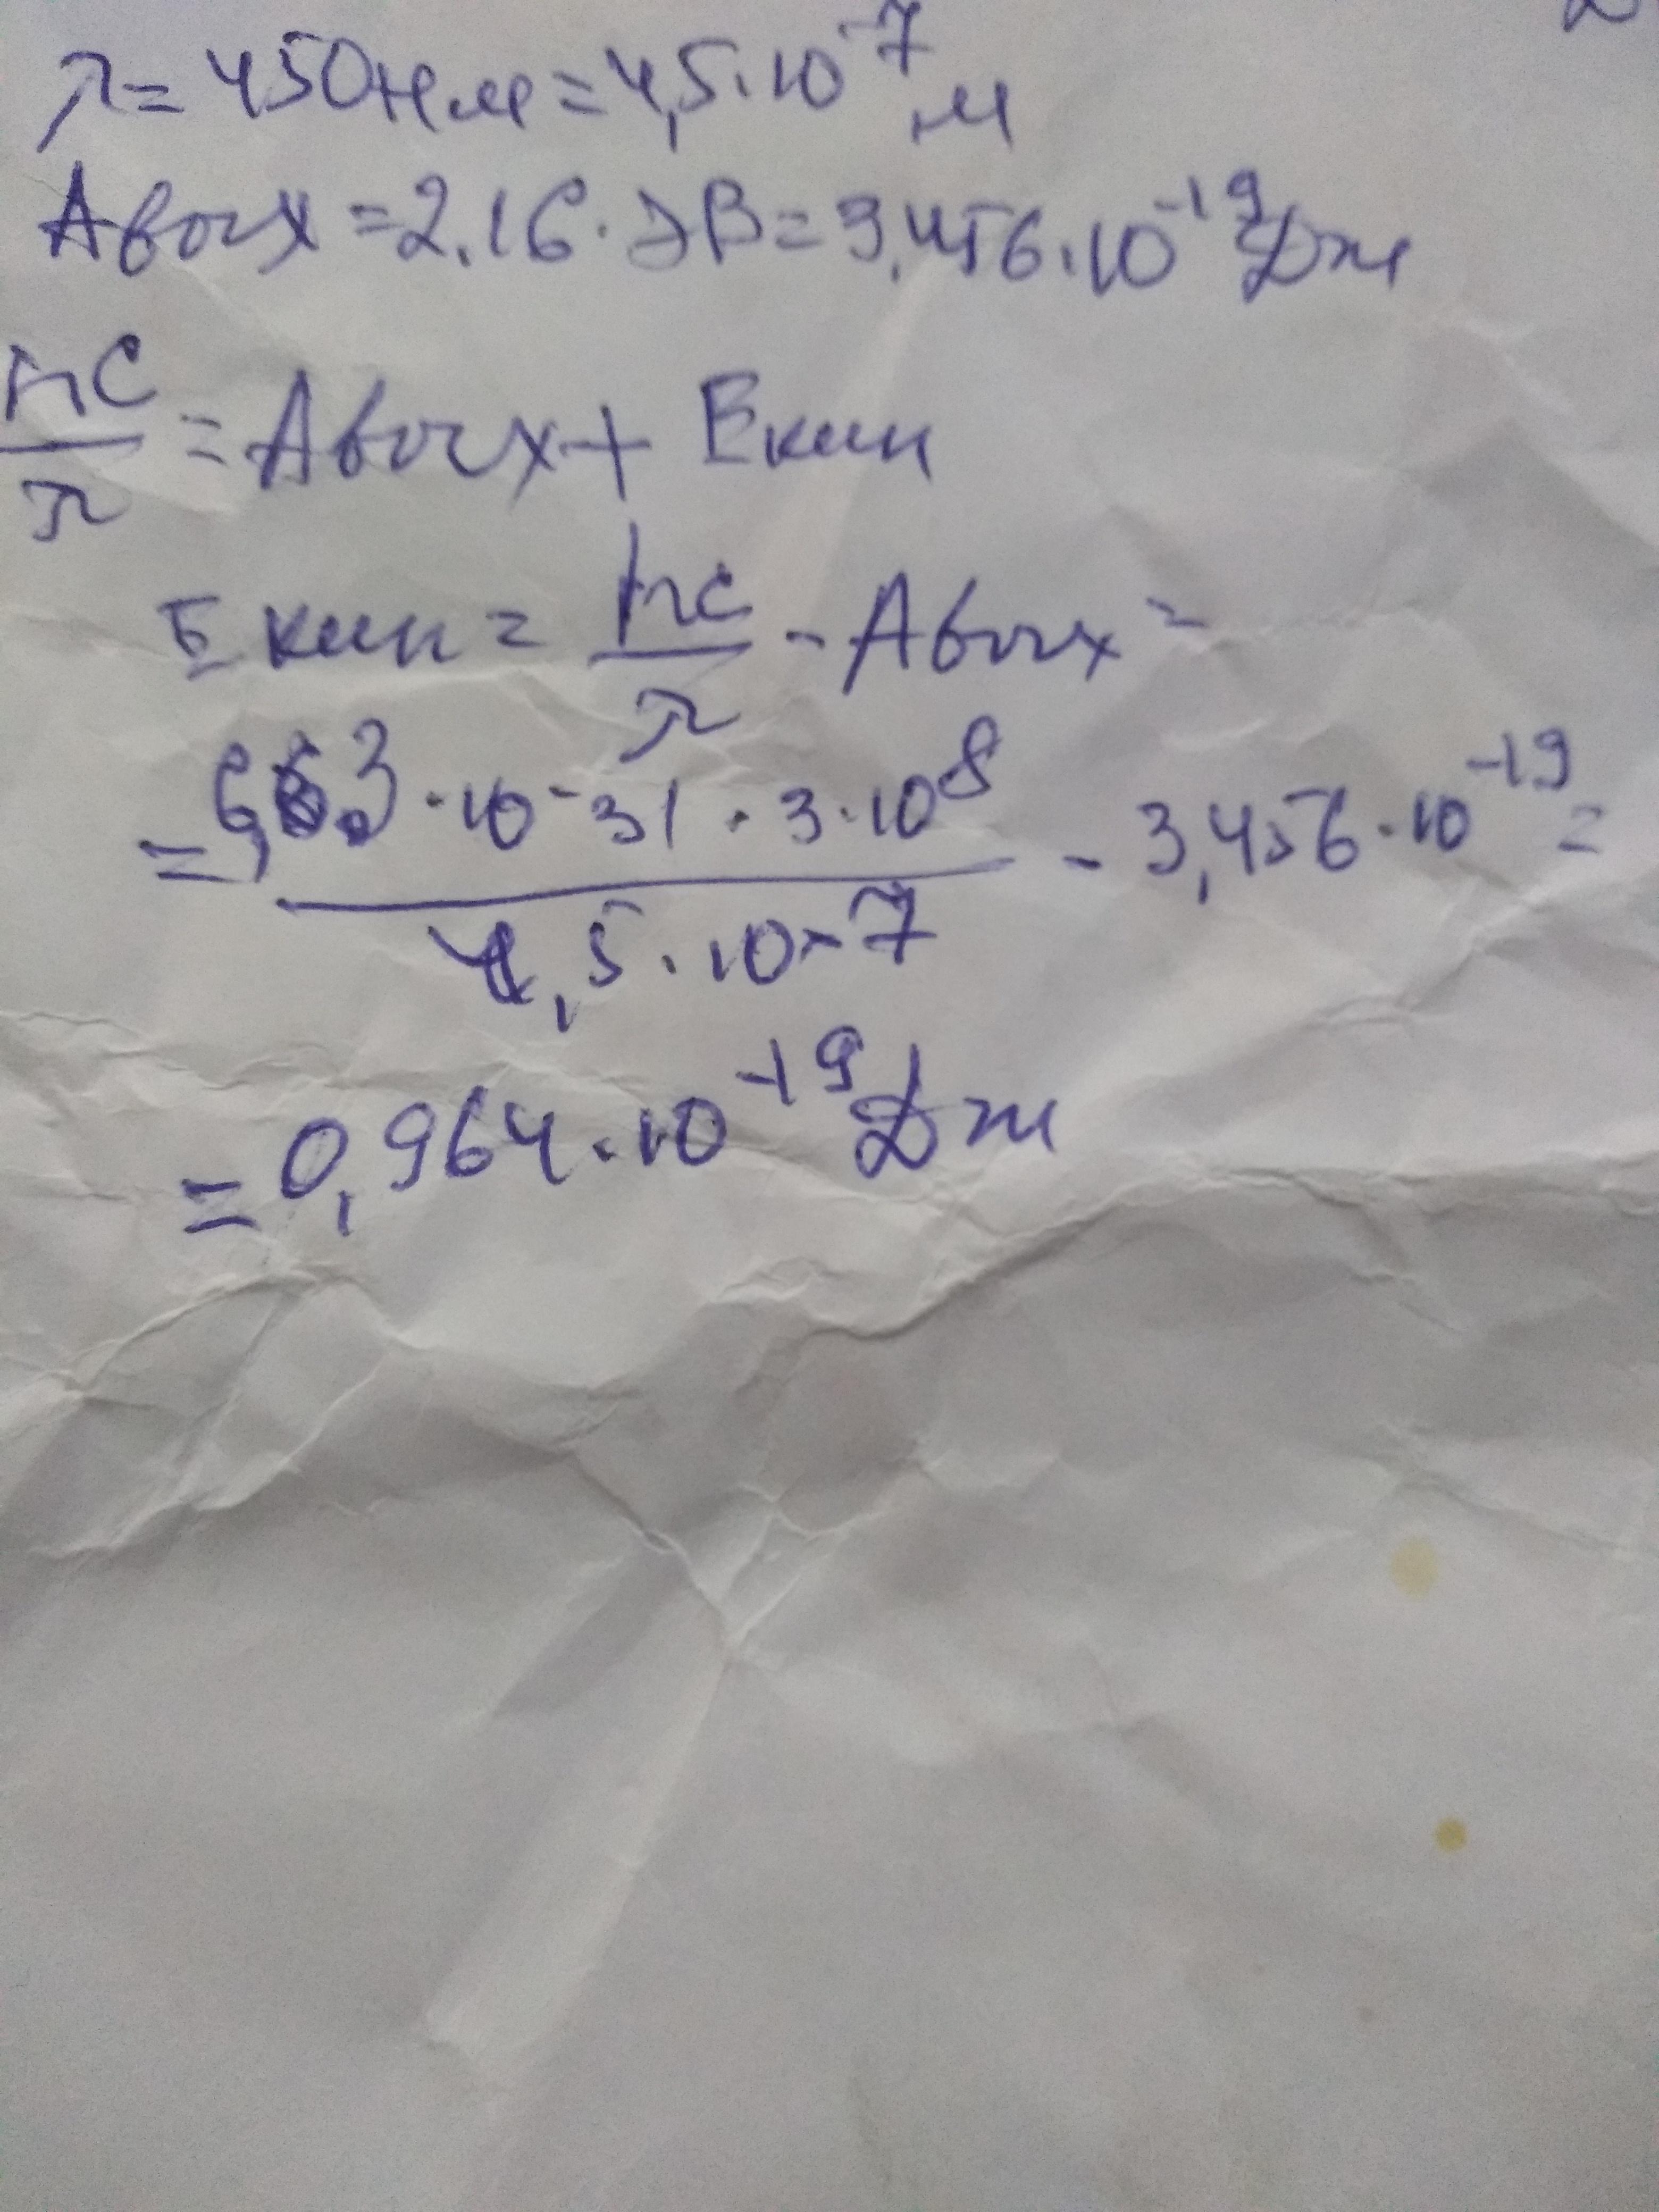 λ = 450 нм = 4,5·10⁻⁷ м
Aвых = 2.16·эВ = 3,456·10⁻¹⁹ Дж
hc/λ = Aвых + Eкин
Eкин = hc/λ - Aвых =
= 6,63·10⁻³¹·3·10⁸/4,5·10⁻⁷ - 3,456·10⁻¹⁹ =
= 0,964·10⁻¹⁹ Дж